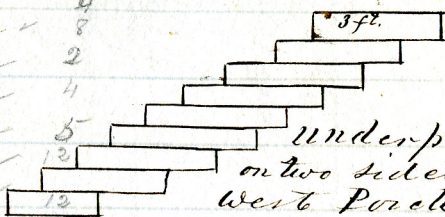 3 ft.
8
2
4
5
12
12
underp
on two side
West Porch